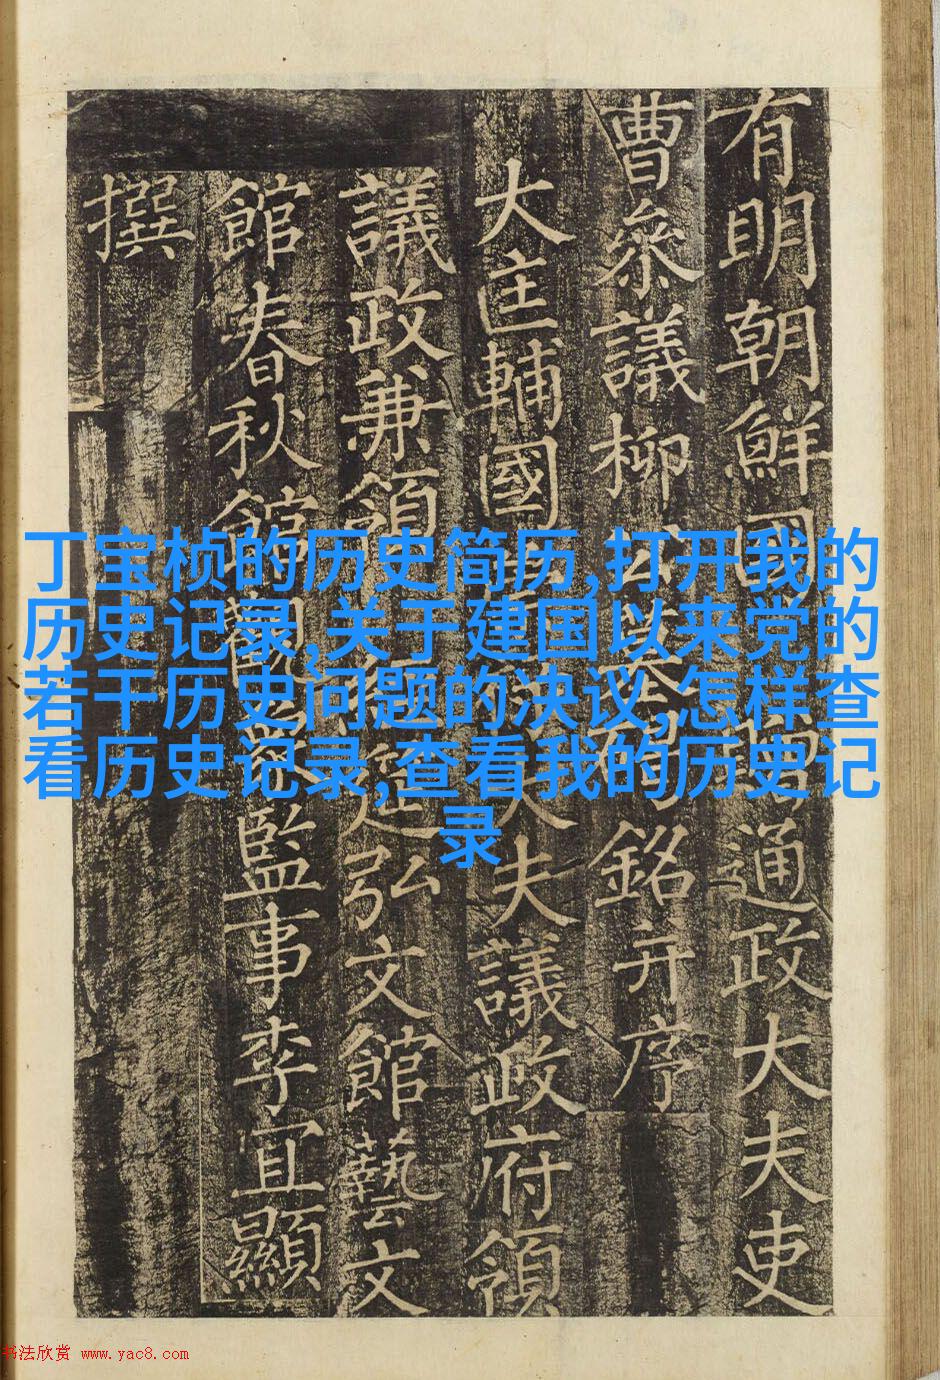 有明朝鮮國通政大夫吏
曹參議柳公墓銘并序
大匡輔國大夫議政府領
議政兼領筵弘文館藝文
館春秋館觀監事李宜顯
撰
丁宝桢的历史简历,打开我的
历史记录,关于建国以来党的
若干历史问题的决议,怎样查
看历史记录,查看我的历史记
录
书法欣赏 www.yac8.com